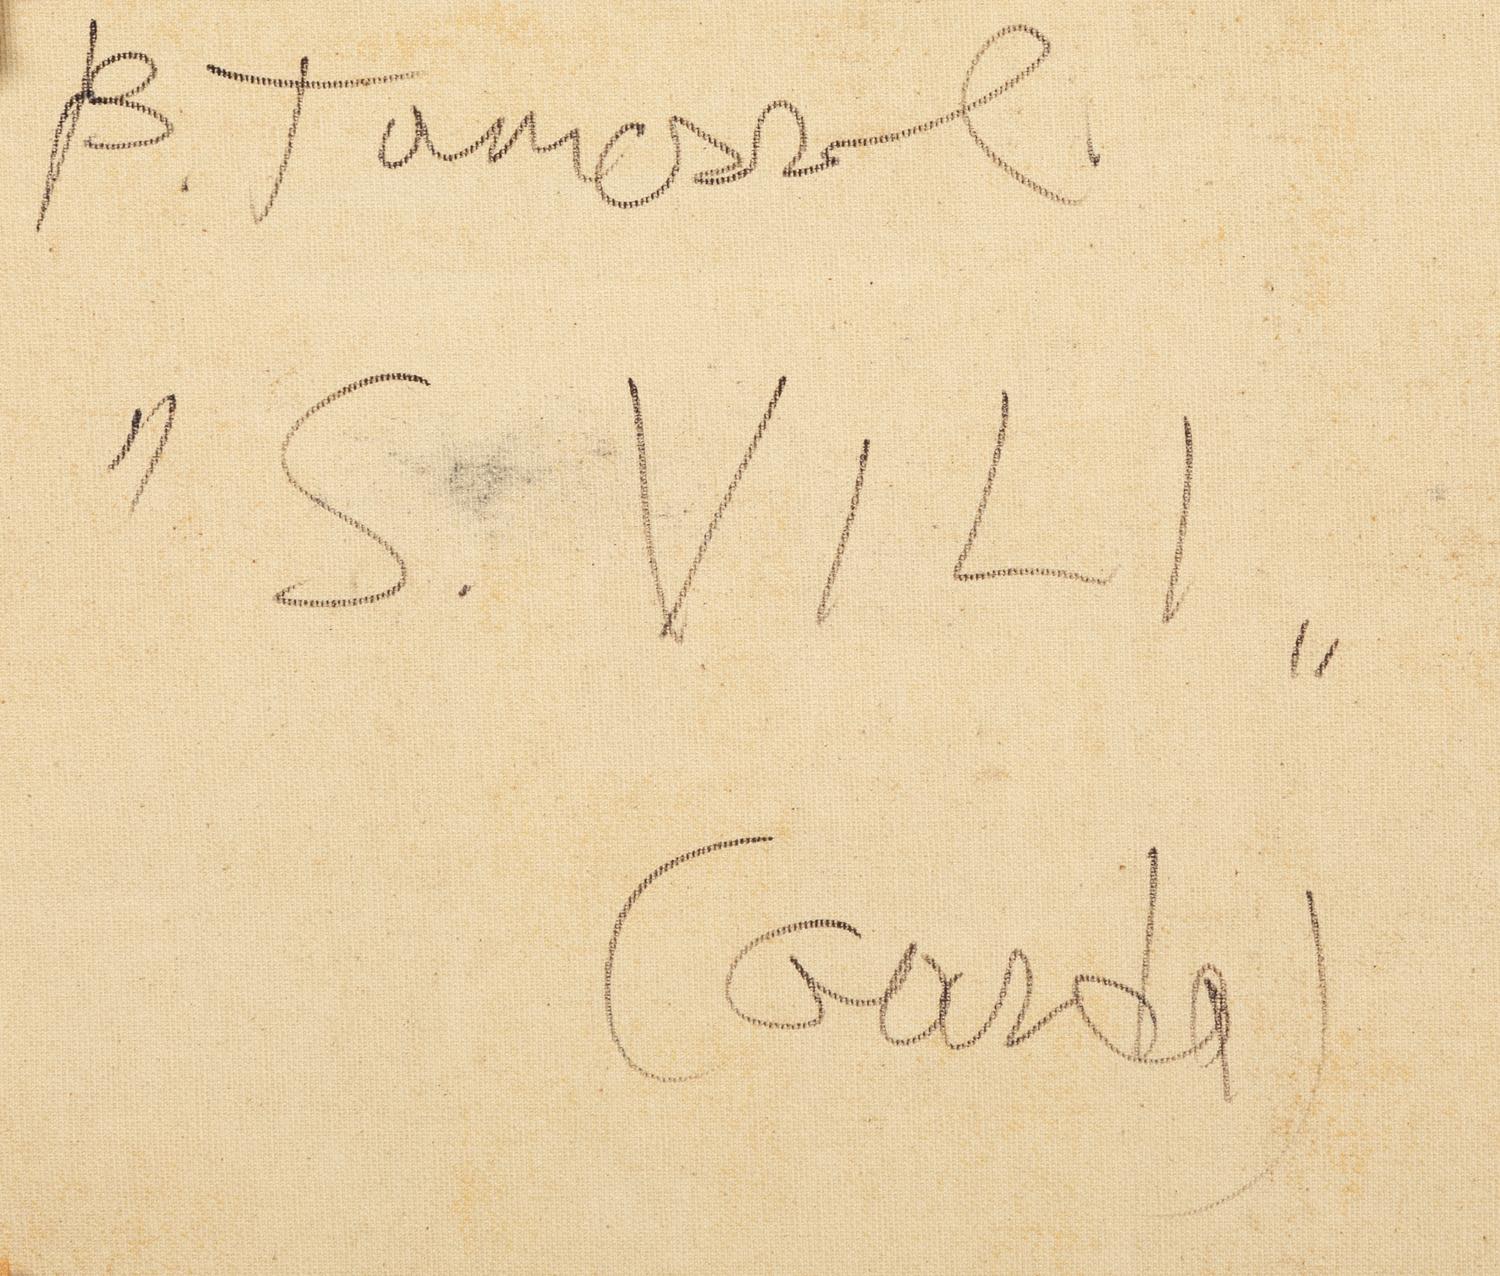 B. Tomaselli
"S. VILI"
(Garda)